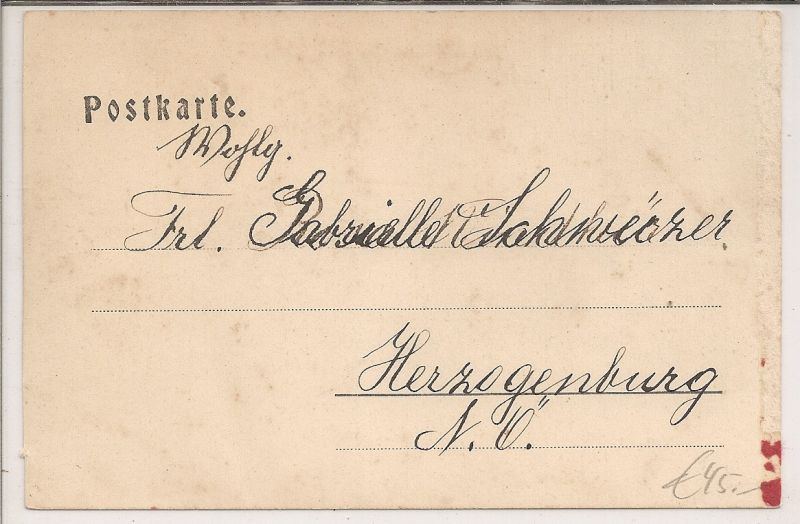 Postkarte.
Wohlg.
Frl. Gabrielle
Herzogenburg
N. Ö.
€ 45.-